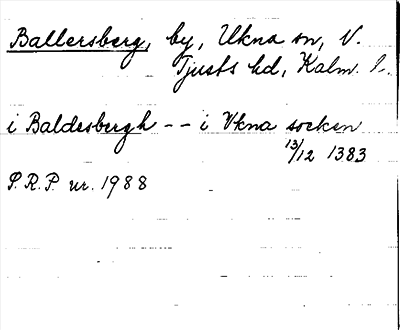 Ballersberg, by, Ukna sn, V.
Tjusts hd, Kalm. l.
i Baldesbergh -- i Vkna socken
13/12 1383
S.R.P. nr. 1988